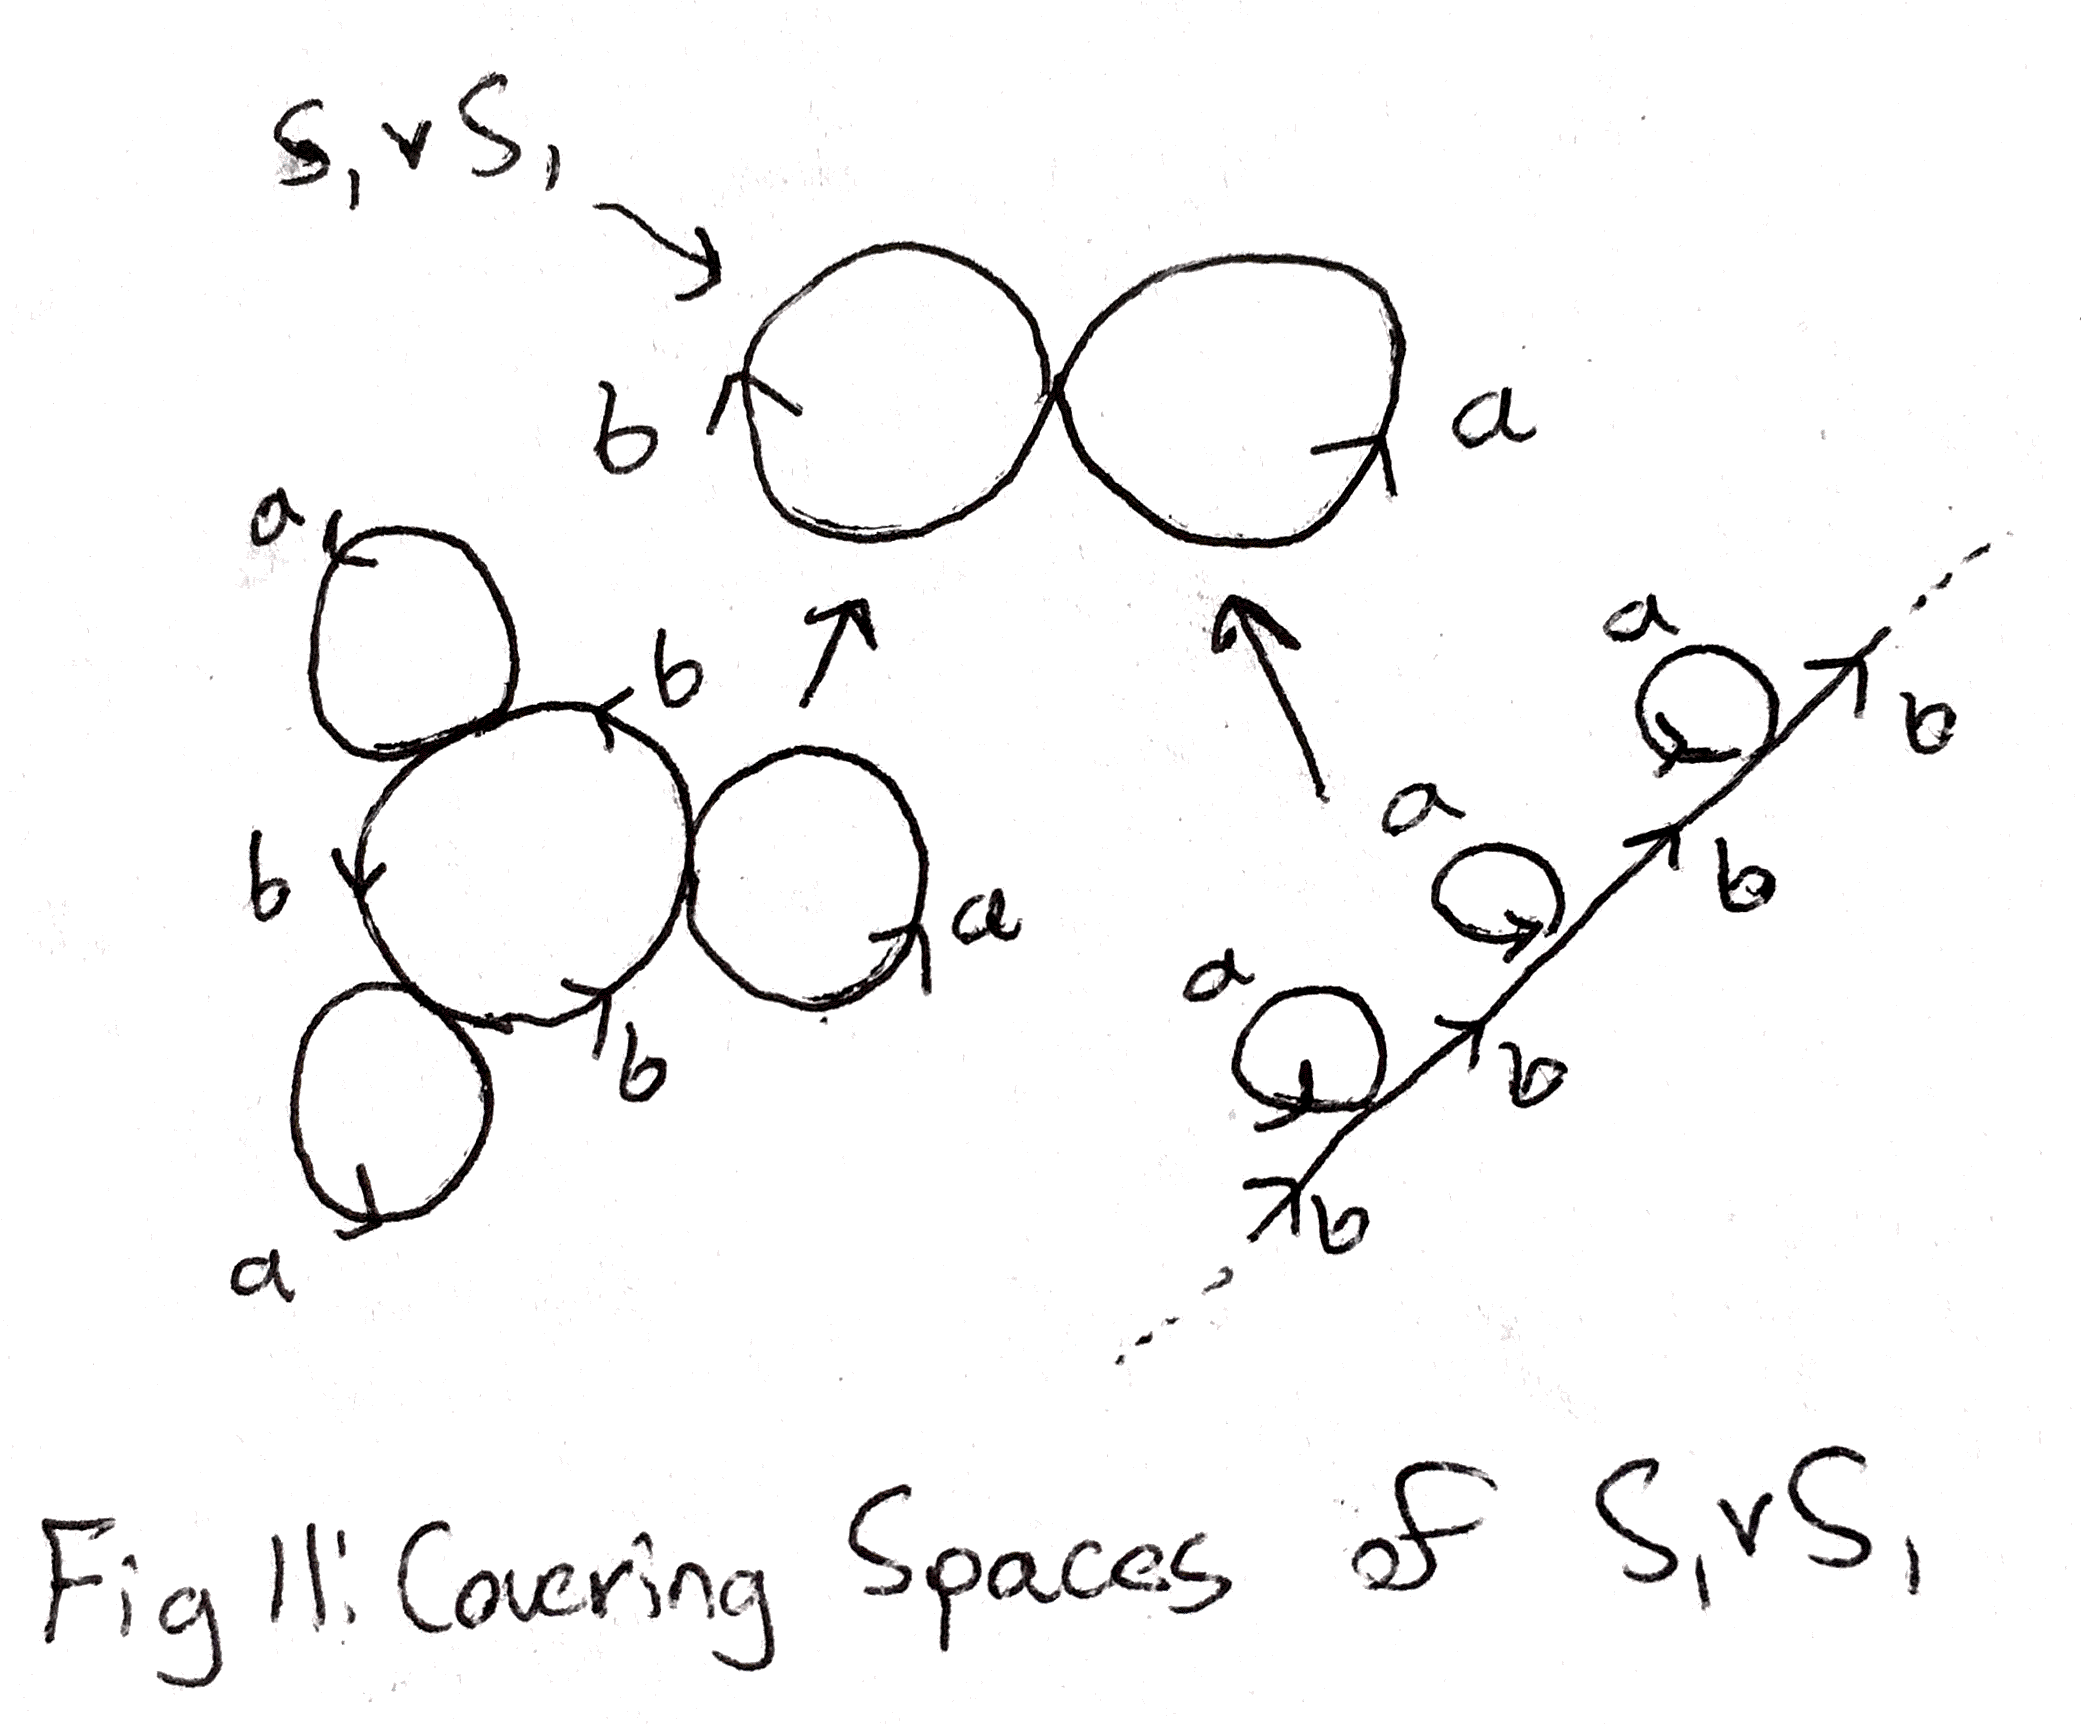 S₁ ∨ S₁
b
a
a
b
a
b
a
b
a
b
b
a
b
a
b
a
Fig 11: Covering Spaces of S₁∨S₁